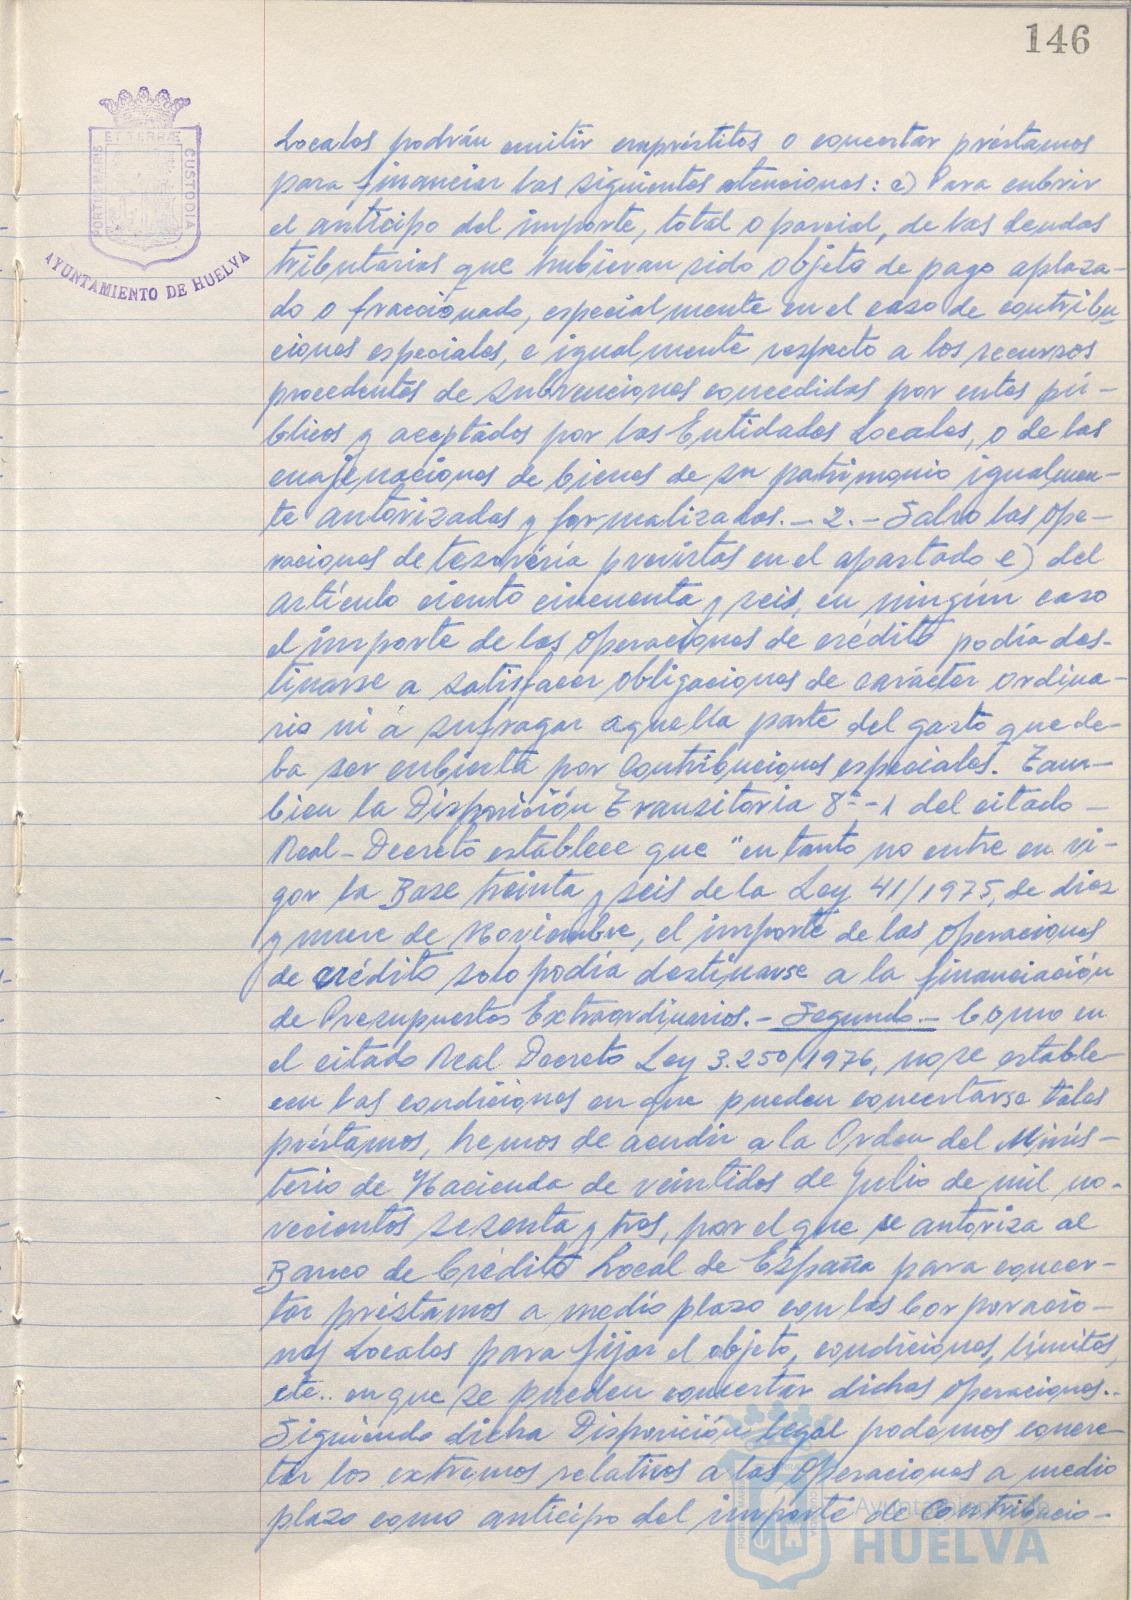 146
PORTUS MARIS
ET TERRÆ
CUSTODIA
AYUNTAMIENTO DE HUELVA
Locales podrán emitir empréstitos o concertar préstamos
para financiar las siguientes atenciones: e) Para cubrir
el anticipo del importe, total o parcial, de las deudas
tributarias que hubieran sido objeto de pago aplaza-
do o fraccionado, especialmente en el caso de contribu
ciones especiales, e igualmente respecto a los recursos
procedentes de subvenciones concedidas por entes pú-
blicos y aceptados por las Entidades Locales, o de las
enajenaciones de bienes de su patrimonio igualmen-
te autorizadas y formalizadas.- 2.- Salvo las ope-
raciones de tesorería previstas en el apartado e) del
artículo ciento cincuenta y seis, en ningún caso
el importe de las operaciones de crédito podía des-
tinarse a satisfacer obligaciones de carácter ordina-
rio ni a sufragar aquella parte del gasto que de-
ba ser cubierta por Contribuciones especiales. Tam-
bien la Disposición Transitoria 8ª-1 del citado -
Real-Decreto establece que "en tanto no entre en vi-
gor la Base treinta y seis de la Ley 41/1975, de diez
y nueve de Noviembre, el importe de las operaciones
de crédito solo podía destinarse a la financiación
de Presupuestos Extraordinarios.- Segundo.- Como en
el citado Real Decreto Ley 3.250/1976, no se estable-
cen las condiciones en que pueden concertarse tales
préstamos, hemos de acudir a la Orden del Minis-
terio de Hacienda de veintidos de Julio de mil no-
vecientos sesenta y tres, por el que se autoriza al
Banco de Crédito Local de España para concer-
tar préstamos a medio plazo con las Corporacio-
nes Locales para fijar el objeto, condiciones, límites,
etc.. en que se pueden concertar dichas operaciones.-
Siguiendo dicha Disposición legal podemos concre-
tar los extremos relativos a las operaciones a medio
plazo como anticipo del importe de Contribucio-
Ayuntamiento de
HUELVA